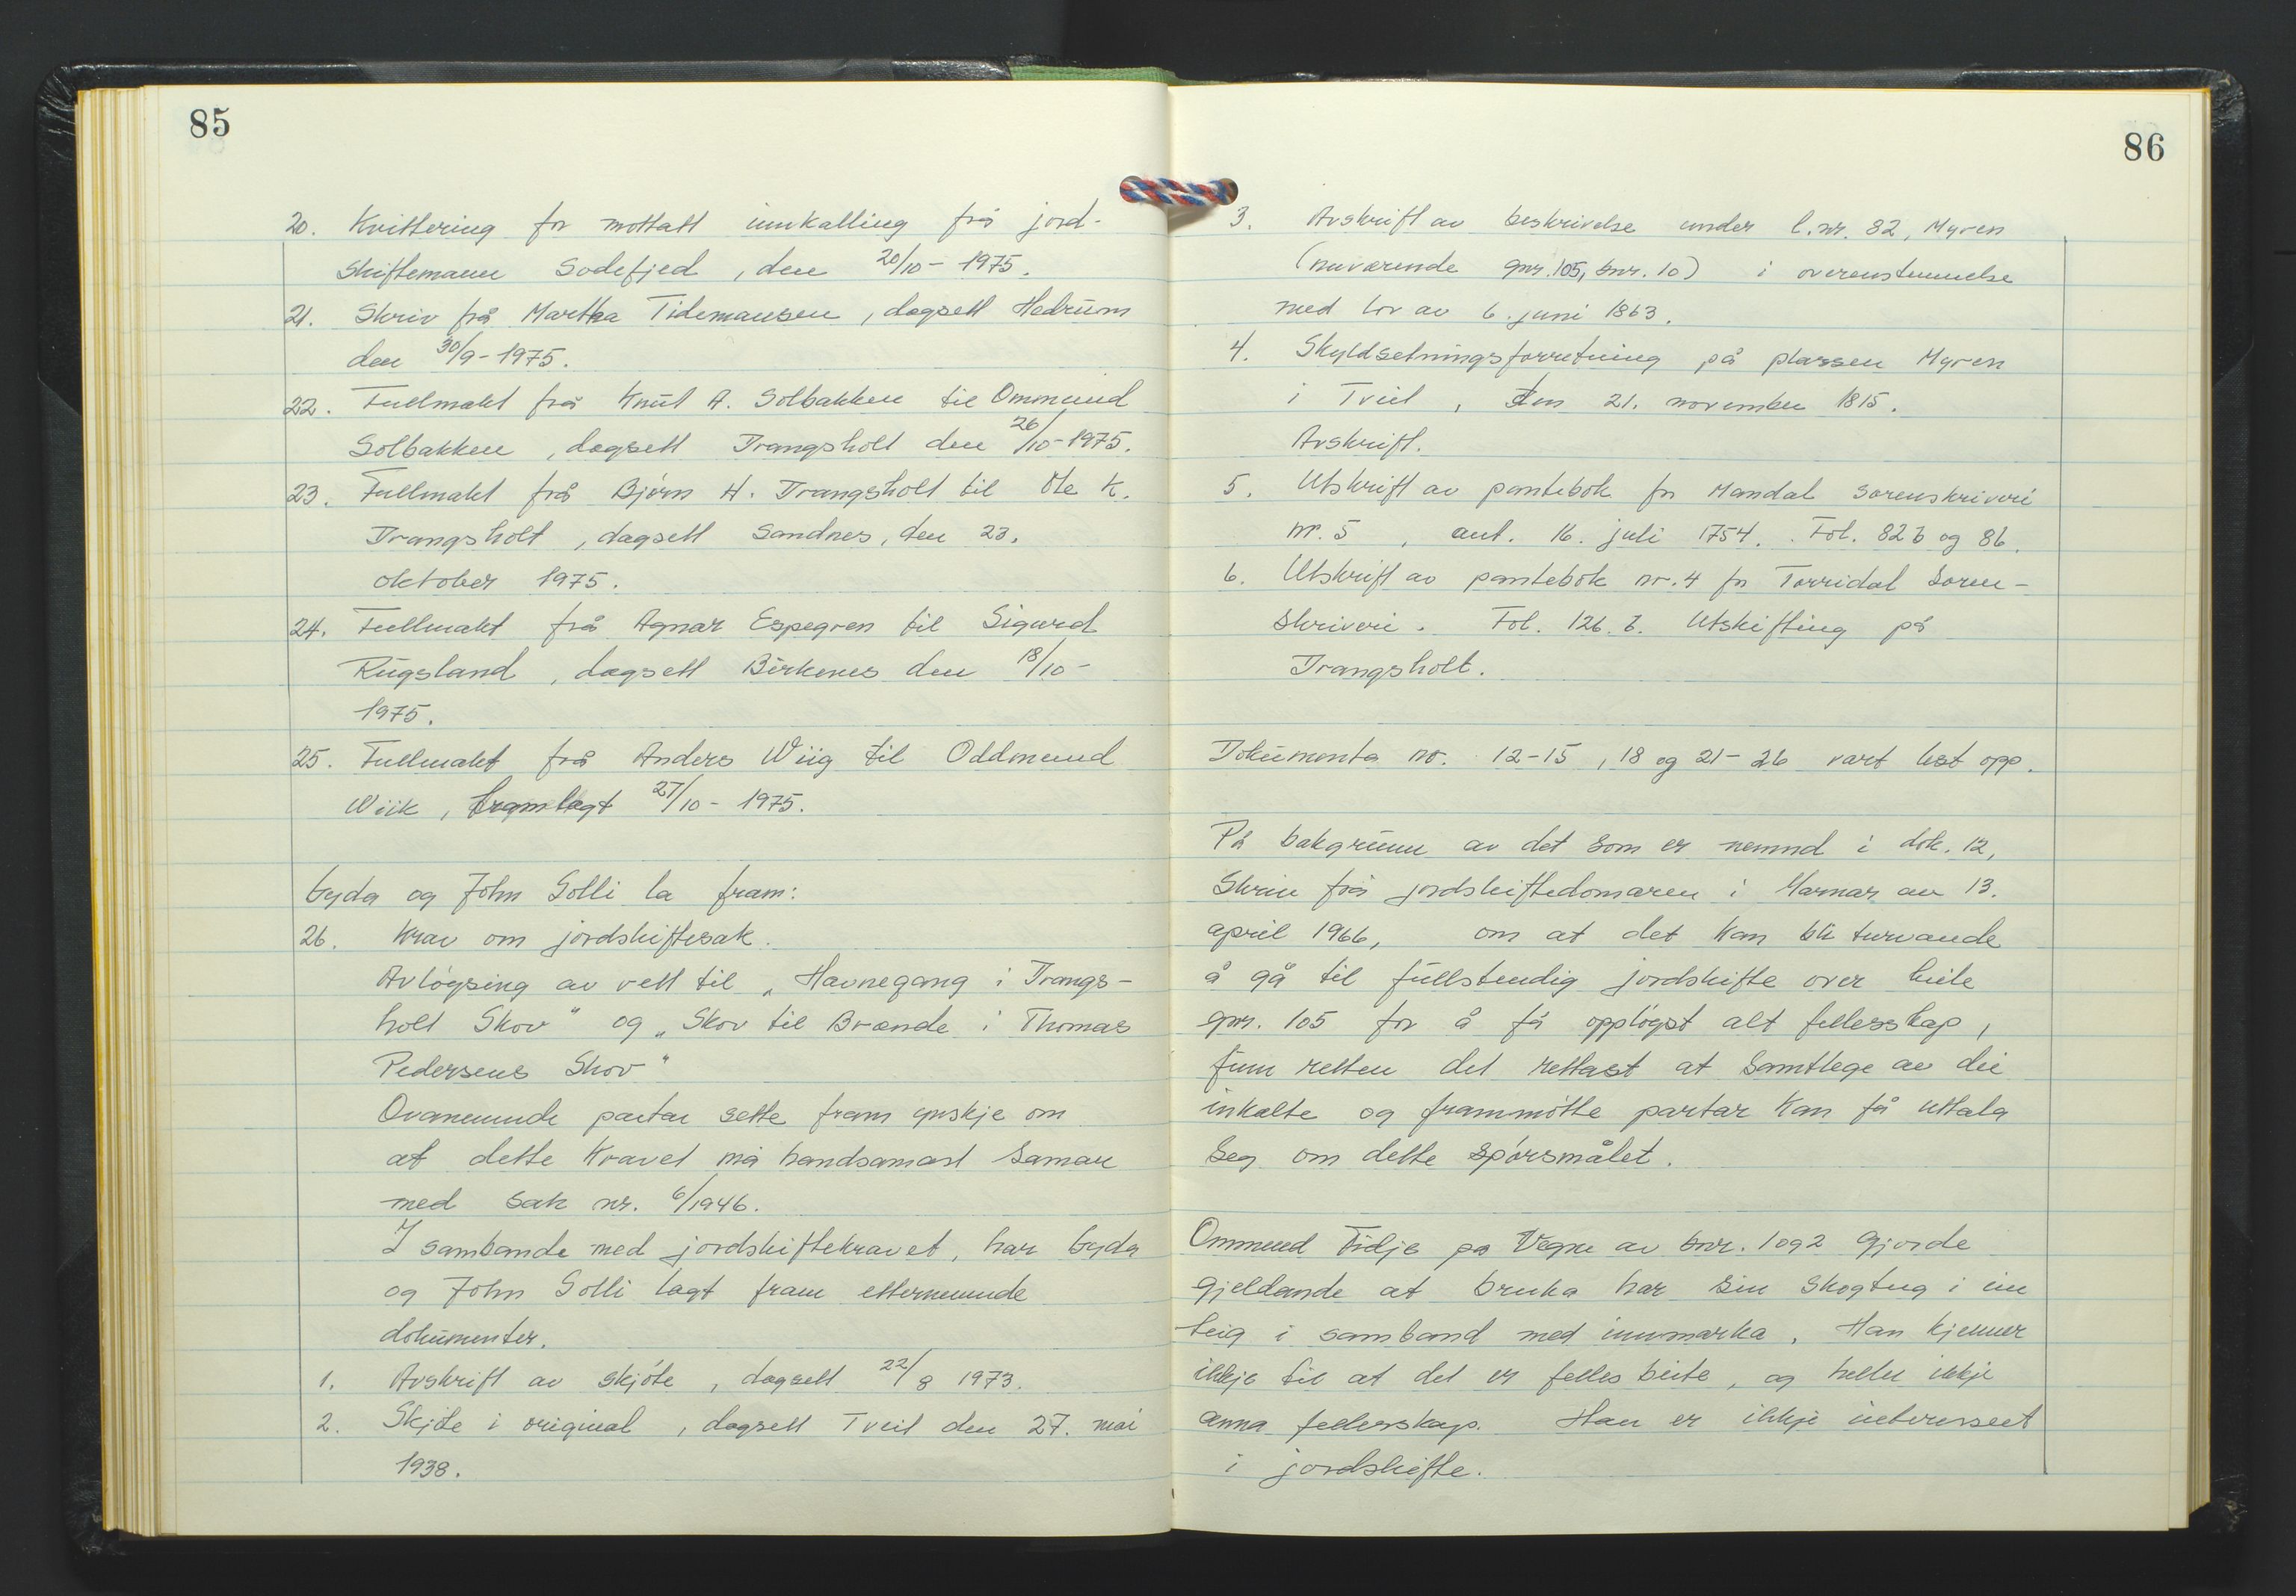 85
20. Kvittering for mottatt innkalling frå jord-
skiftemann Sodefjed, den 20/10 - 1975.
21. Skriv frå Martha Tidemansen, dagsett Hedrum
den 30/9 - 1975.
22. Fullmakt frå Knut A. Solbakken til Ommund
Solbakken, dagsett Drangsholt den 26/10 - 1975.
23. Fullmakt frå Bjørn H. Drangsholt til Ole K.
Drangsholt, dagsett Sandnes, den 23.
oktober 1975.
24. Fullmakt frå Agnar Espegren til Sigurd
Rugsland, dagsett Birkenes den 18/10 -
1975.
25. Fullmakt frå Anders Wiig til Oddmund
Wiik, framlagt 27/10 - 1975.
Gyda og John Solli la fram:
26. Krav om jordskiftesak.
Avløysing av rett til „Havnegang i Drangs-
holt Skov" og „Skov til Brænde i Thomas
Pedersens Skov"
Ovanemnde partar sette fram ynskje om
at dette kravet må handsamast saman
med sak nr. 6/1946.
I sambande med jordskiftekravet, har Gyda
og John Solli lagt fram etternemnde
dokumenter.
1. Avskrift av skjøte, dagsett 22/8 1973.
2. Skjøte i original, dagsett Tveit den 27. mai
1938.
86
3. Avskrift av beskrivelse under l.nr. 82, Myren
(nuværende gnr. 105, bnr. 10) i overenstemmelse
med lov av 6. juni 1863.
4. Skyldsetningsforretning på plassen Myren
i Tveit, den 21. november 1815.
Avskrift.
5. Utskrift av pantebok for Mandal sorenskriveri
nr. 5, aut. 16. juli 1754. Fol. 82 b og 86.
6. Utskrift av pantebok nr. 4 for Torridal soren-
skriveri. Fol. 126 b. Utskifting på
Drangsholt.
Dokumenta nr. 12-15, 18 og 21-26 vart lest opp.
På bakgrunn av det som er nemnd i dok. 12,
skriv frå jordskiftedomaren i Marnar av 13.
april 1966, om at det kan bli turvande
å gå til fullstendig jordskifte over heile
gnr. 105 for å få oppløyst alt fellesskap,
finn retten det rettast at samtlege av dei
inkalte og frammøtte partar kan få uttala
seg om dette spørsmålet.
Ommund Fidje på vegne av bnr. 1 og 2 gjorde
gjeldande at bruka har sin skogteig i ein
teig i samband med innmarka. Han kjenner
ikkje til at det er felles beite, og heller ikkje
anna fellesskap. Han er ikkje interessert
i jordskifte.